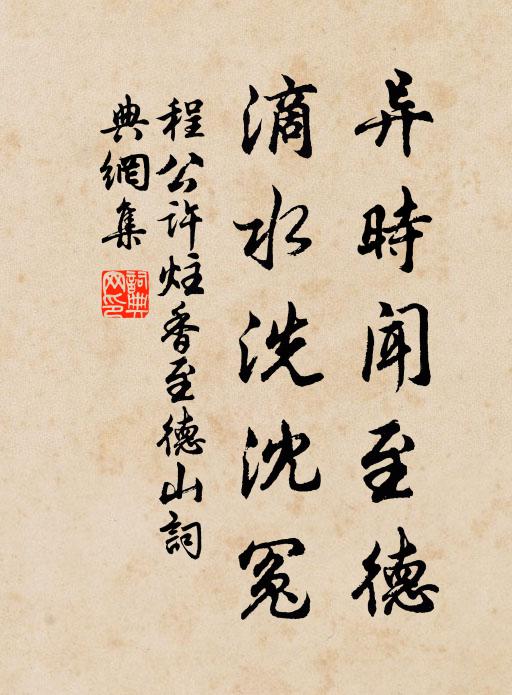 异時闻至德
滴水洗沈冤
程公许炷香至德山詞
典網集
詞典
网印